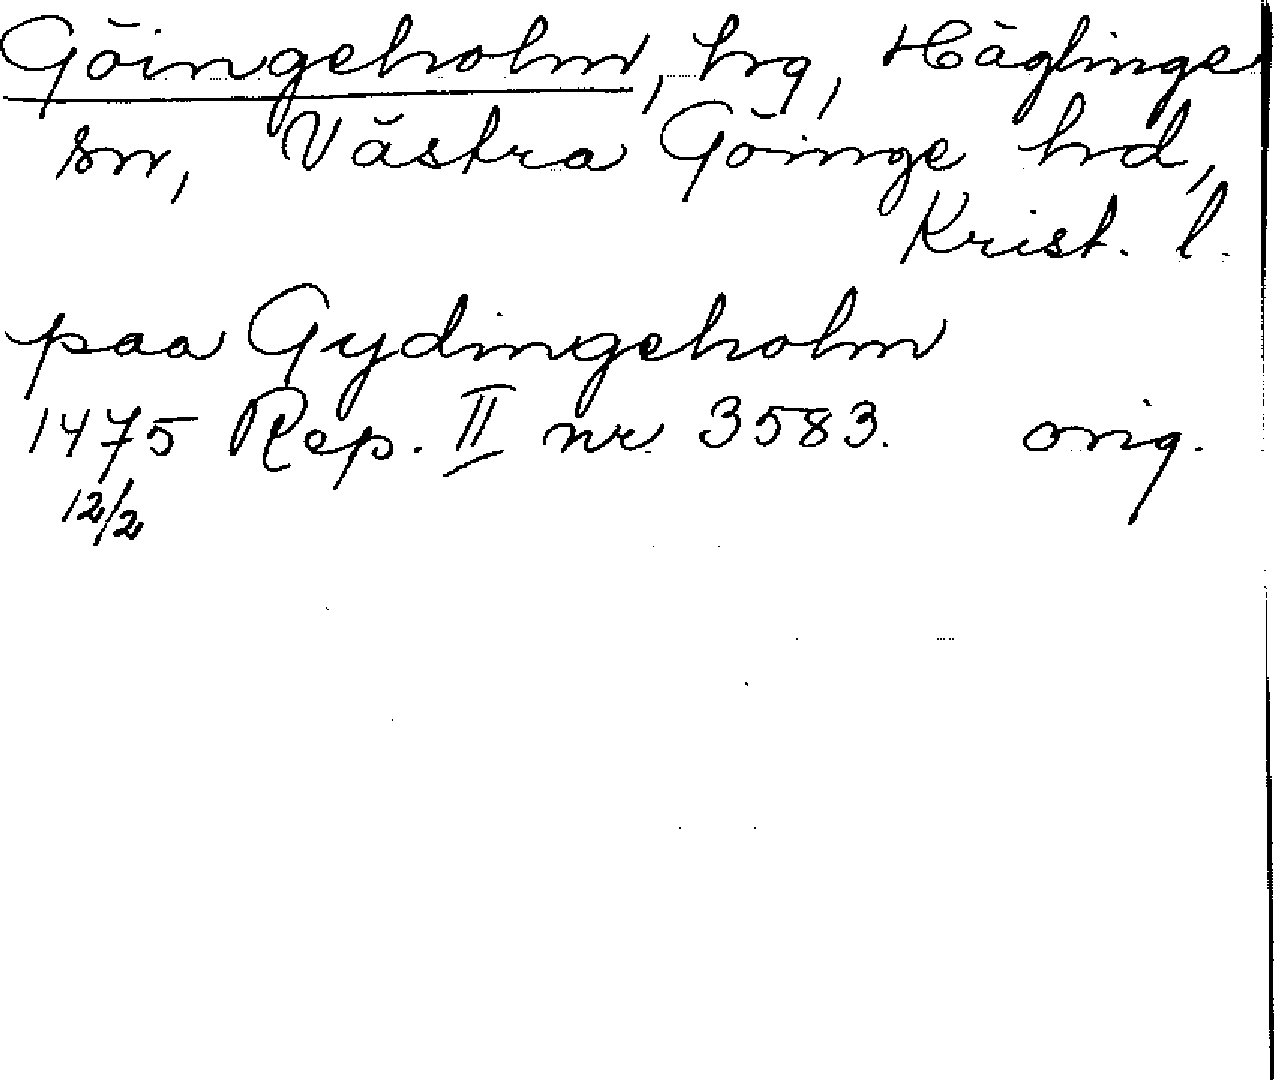 Göingeholm, hrg, Häglinge
sn, Västra Göinge hrd,
Krist. l.
paa Gydingeholm
1475 Rep. II nr 3583. orig.
12/2